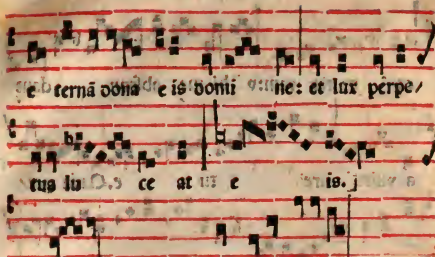 e ternā dona e is domi ne: et lux perpe/
tua lu ce at e is.